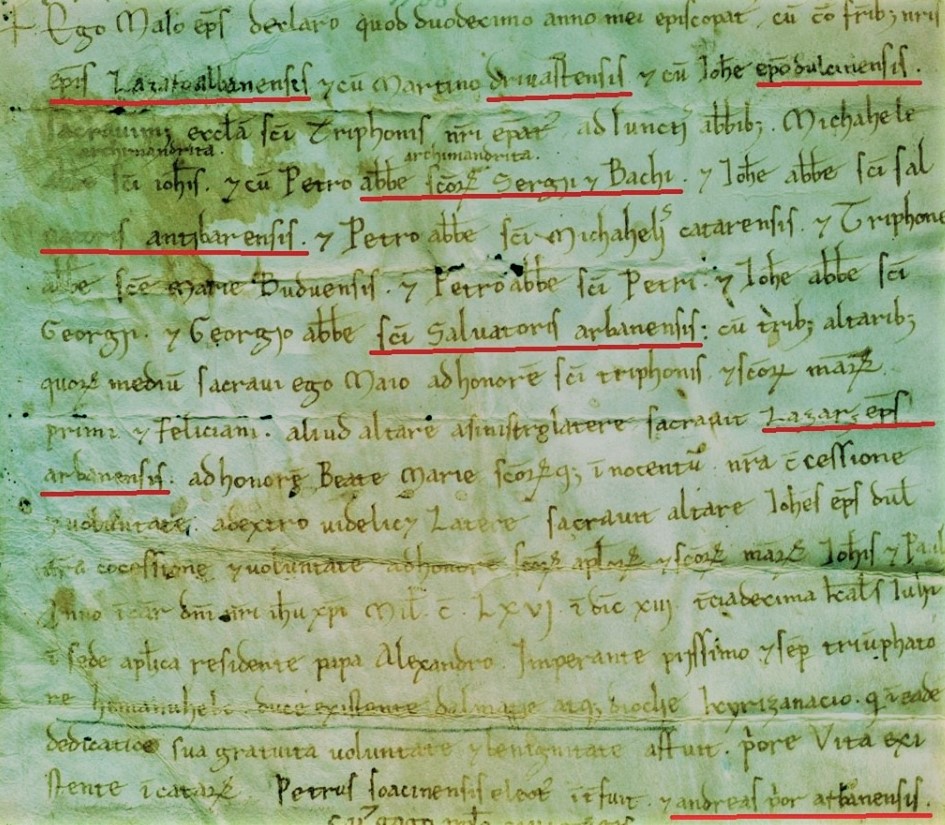 + Ego Maio ep̄s declaro quod duodecimo anno mei episcopat, cū cō fr̄ib; nr̄is
ep̄is Lazaro albanensis ⁊ cū Martino drivastensis ⁊ cū Ioh̄e ep̄o dulcinensis.
sacravim; eccl̄a sc̄i Triphonis nr̄i adiunctis abbīb; Michahele
archimandrita. archimandrita.
abb̄e sc̄i ioh̄is. ⁊ cū Petro abb̄e scōꝝ Sergii ⁊ Bachi. ⁊ Ioh̄e abb̄e sc̄i sal
vatoris antibarensis. ⁊ Petro abb̄e sc̄i Michahelis catarensis. ⁊ Triphone
abb̄e sc̄e Marie Buduensis. ⁊ Petro abb̄e sc̄i Petri. ⁊ Ioh̄e abb̄e sc̄i
Georgii. ⁊ Georgio abb̄e sc̄i Salvatoris arbanensis: cū trib; altarib;
quoꝝ mediū sacravi ego Maio ad honorē sc̄i triphonis ⁊ scōꝝ mār̄ꝝ
primi ⁊ feliciani. aliud altare a sinistro latere sacravit Lazar ep̄s
arbanensis. ad honorē Beate Marie scōꝝq; īnocentū. nr̄a c̄cessione
⁊ voluntate. a dextro videlic⁊ Latere sacravit altare Ioh̄es ep̄s dul
nr̄a cōcessione ⁊ voluntate ad honore scōꝝ ap̄lōꝝ ⁊ scōꝝ mār̄ꝝ Ioh̄is ⁊ Pauli
Anno īcar̄ dn̄i nr̄i ih̄u xp̄i Mil̄ c̄. LXVI. īdic XIII. t̄ciadecima kal̄s Iulii
ī sede apl̄ica residente papa Alexandro. Imperante piissimo ⁊ sēp triūphato
re hemanuhele. duce existente dalmatie atq; dioclie kyrizanacio. q̄ ī eadē
dedicatiōe sua gratuita voluntate ⁊ benignitate affuit. p̄ore Vita exi
stente ī cataꝝ. Petrus soacinensis elect̄ īt̄fuit. ⁊ andreas p̄or arbanensis.